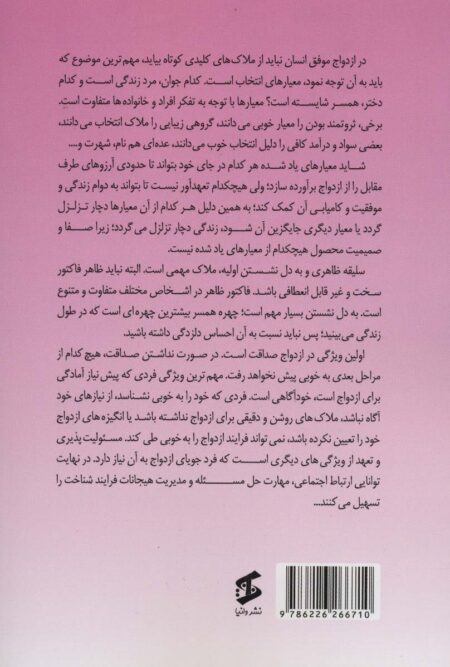 در ازدواج موفق انسان نباید از ملاک‌های کلیدی کوتاه بیاید، مهم‌ترین موضوع که
باید به آن توجه نمود، معیارهای انتخاب است. کدام جوان، مرد زندگی است و کدام
دختر، همسر شایسته است؟ معیارها با توجه به تفکر افراد و خانواده‌ها متفاوت است.
برخی، ثروتمند بودن را معیار خوبی می‌دانند، گروهی زیبایی را ملاک انتخاب می‌دانند،
بعضی سواد و درآمد کافی را دلیل انتخاب خوب می‌دانند، عده‌ای هم نام، شهرت و....
شاید معیارهای یاد شده هر کدام در جای خود بتواند تا حدودی آرزوهای طرف
مقابل را از ازدواج برآورده سازد؛ ولی هیچکدام تعهدآور نیست تا بتواند به دوام زندگی و
موفقیت و کامیابی آن کمک کند؛ به همین دلیل هر کدام از آن معیارها دچار تزلزل
گردد یا معیار دیگری جایگزین آن شود، زندگی دچار تزلزل می‌گردد؛ زیرا صفا و
صمیمیت محصول هیچکدام از معیارهای یاد شده نیست.
سلیقه ظاهری و به دل نشستن اولیه، ملاک مهمی است. البته نباید ظاهر فاکتور
سخت و غیر قابل انعطافی باشد. فاکتور ظاهر در اشخاص مختلف متفاوت و متنوع
است. به دل نشستن بسیار مهم است؛ چهره همسر بیشترین چهره‌ای است که در طول
زندگی می‌بینید؛ پس نباید نسبت به آن احساس دلزدگی داشته باشید.
اولین ویژگی در ازدواج صداقت است. در صورت نداشتن صداقت، هیچ کدام از
مراحل بعدی به خوبی پیش نخواهد رفت. مهم ترین ویژگی فردی که پیش نیاز آمادگی
برای ازدواج است، خودآگاهی است. فردی که خود را به خوبی نشناسد، از نیازهای خود
آگاه نباشد، ملاک های روشن و دقیقی برای ازدواج نداشته باشد یا انگیزه های ازدواج
خود را تعیین نکرده باشد، نمی تواند فرایند ازدواج را به خوبی طی کند. مسئولیت پذیری
و تعهد از ویژگی های دیگری است که فرد جویای ازدواج به آن نیاز دارد. در نهایت
توانایی ارتباط اجتماعی، مهارت حل مسئله و مدیریت هیجانات فرایند شناخت را
تسهیل می کنند...
نشر وانیا
9 786226 266710